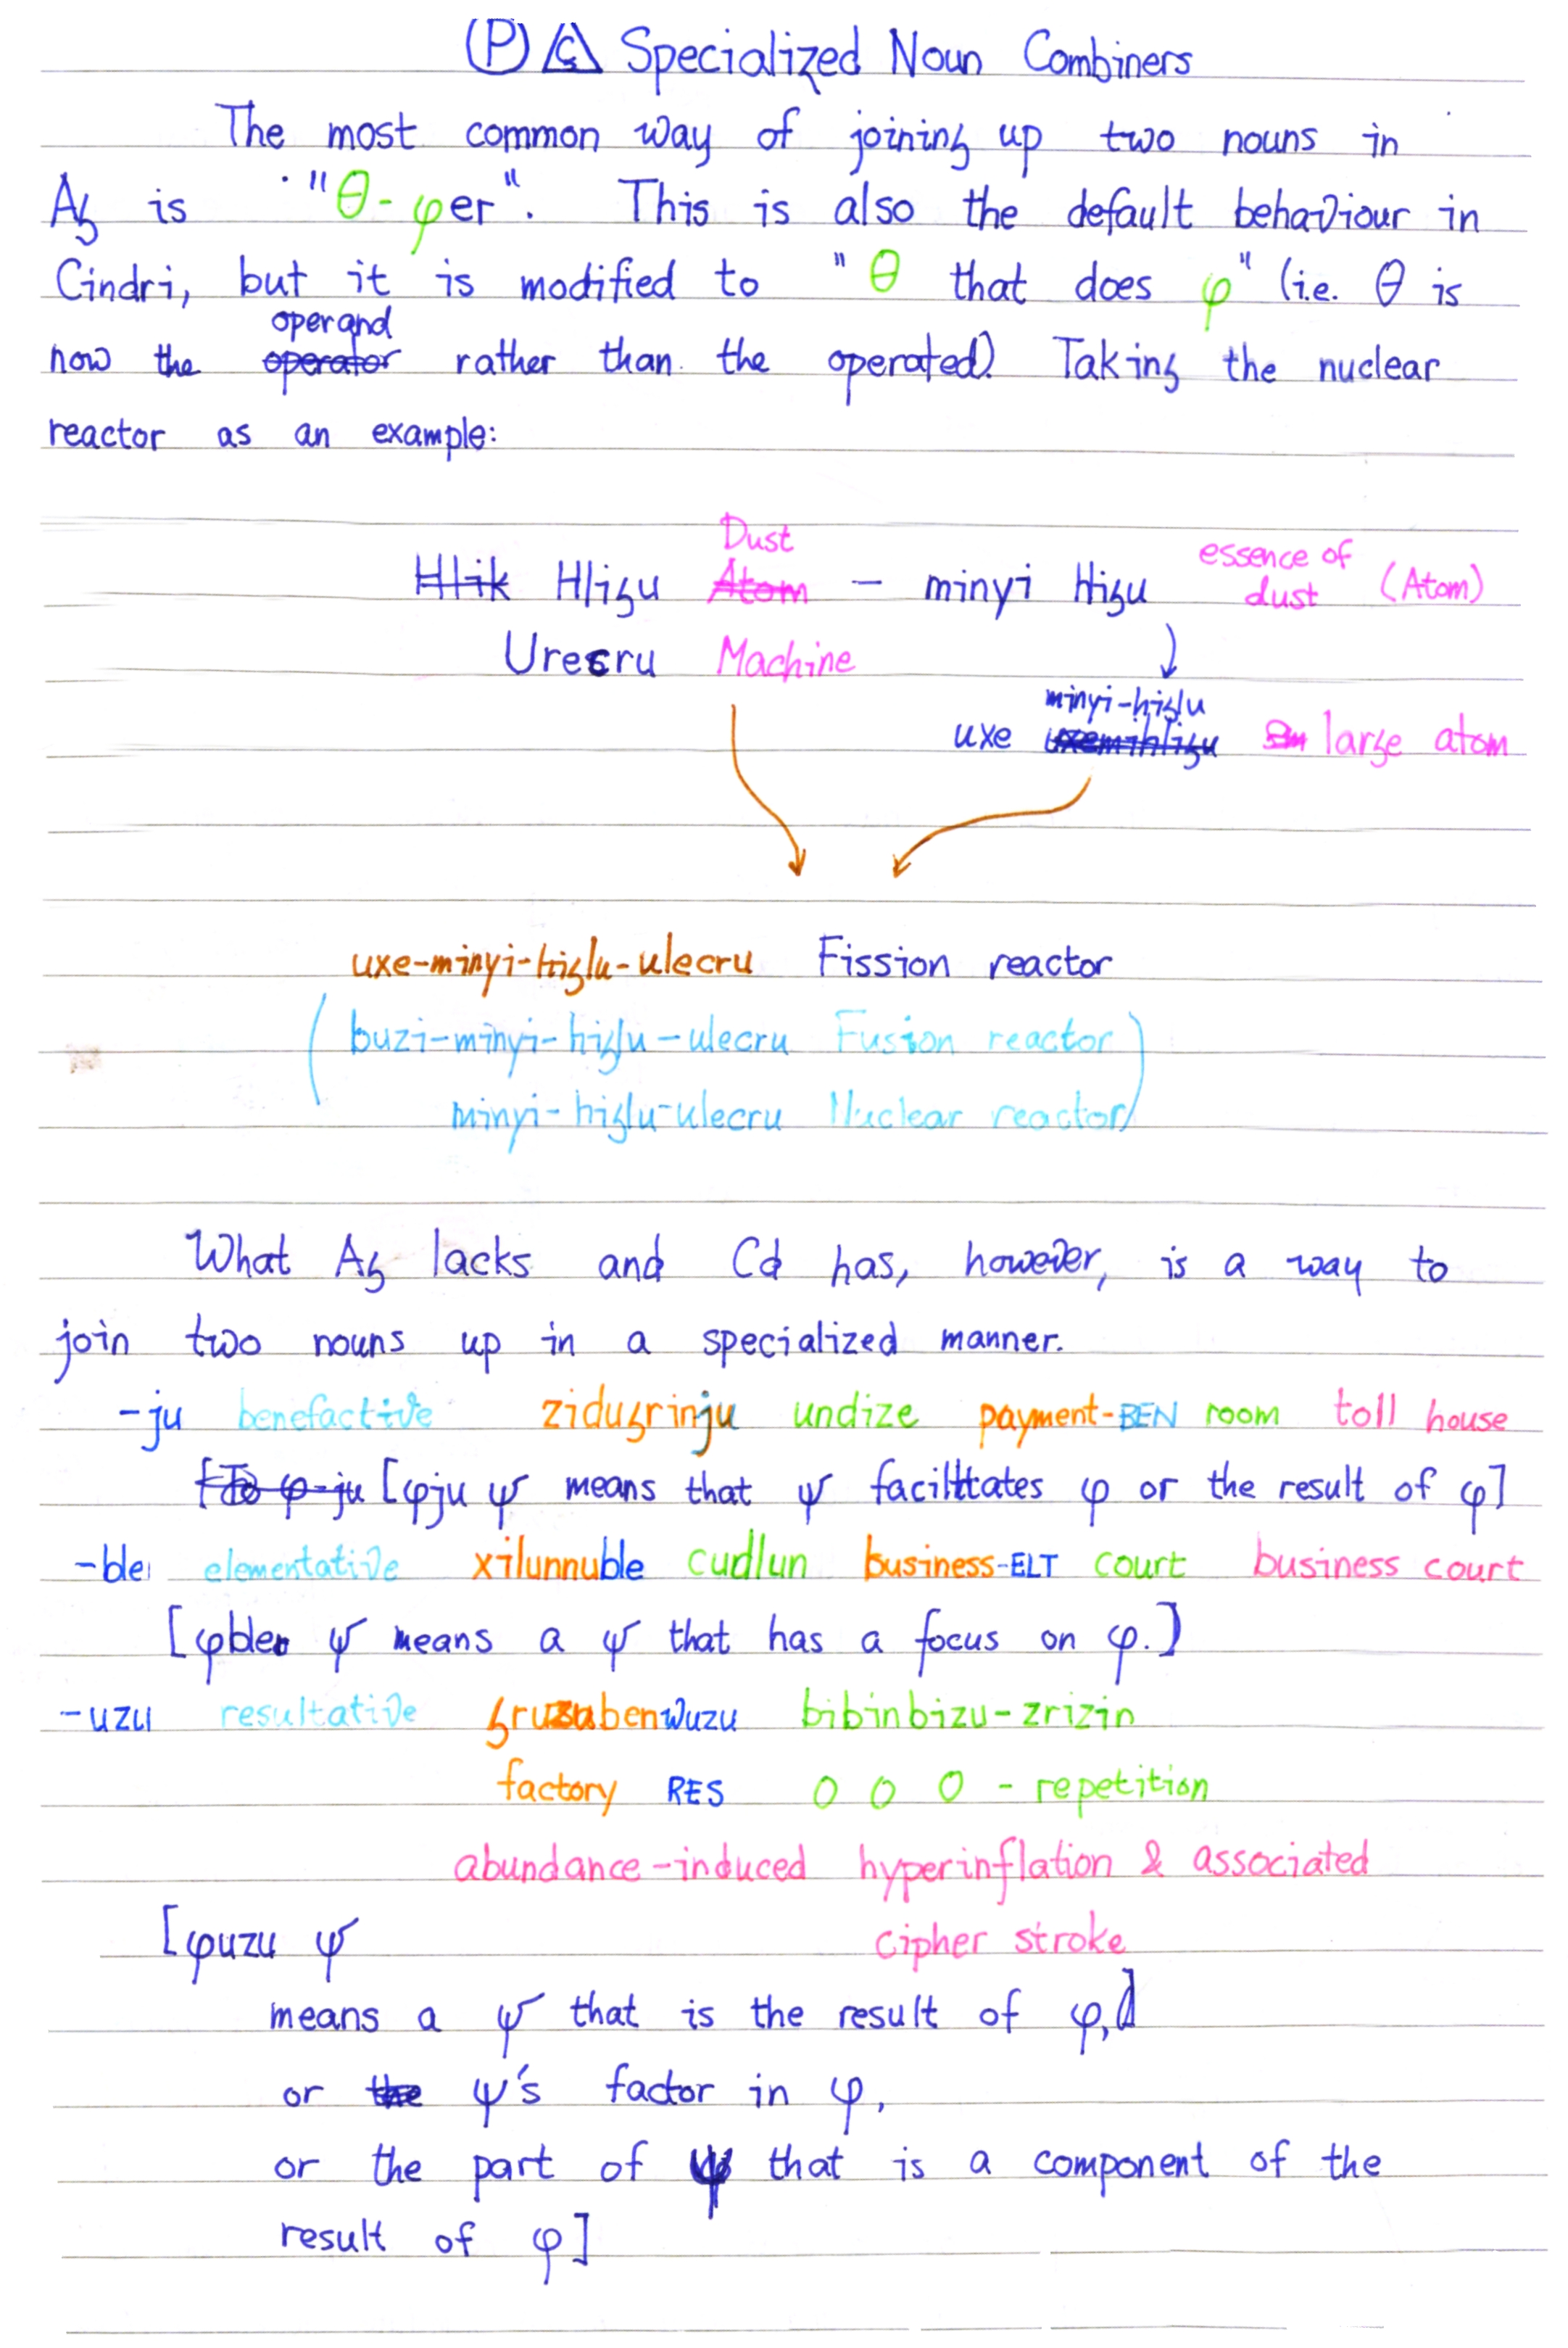 (P) Ç Specialized Noun Combiners
The most common way of joining up two nouns in
Ag is "θ-φer". This is also the default behaviour in
Cindri, but it is modified to "θ that does φ" (i.e. θ is
operand
now the operator rather than the operated). Taking the nuclear
reactor as an example:
Dust
Hlik Hligu Atom – minyi Higu essence of dust (Atom)
Urecru Machine
minyi-higlu
uxe uxemihligu Sm large atom
uxe-minyi-higlu-ulecru Fission reactor
(buzi-minyi-higlu-ulecru Fusion reactor
minyi-higlu-ulecru Nuclear reactor)
What Ag lacks and Cd has, however, is a way to
join two nouns up in a specialized manner.
-ju benefactive zidugrinju undize payment-BEN room toll house
[To φ-ju [φju ψ means that ψ facilitates φ or the result of φ]
-ble elementative xilunnuble cudlun business-ELT court business court
[φble ψ means a ψ that has a focus on φ.]
-uzu resultative bibinbizu-zrizin
factory RES 0 0 0 - repetition
abundance-induced hyperinflation & associated
cipher stroke
[φuzu ψ
means a ψ that is the result of φ,
or the ψ's factor in φ,
or the part of ψ that is a component of the
result of φ]